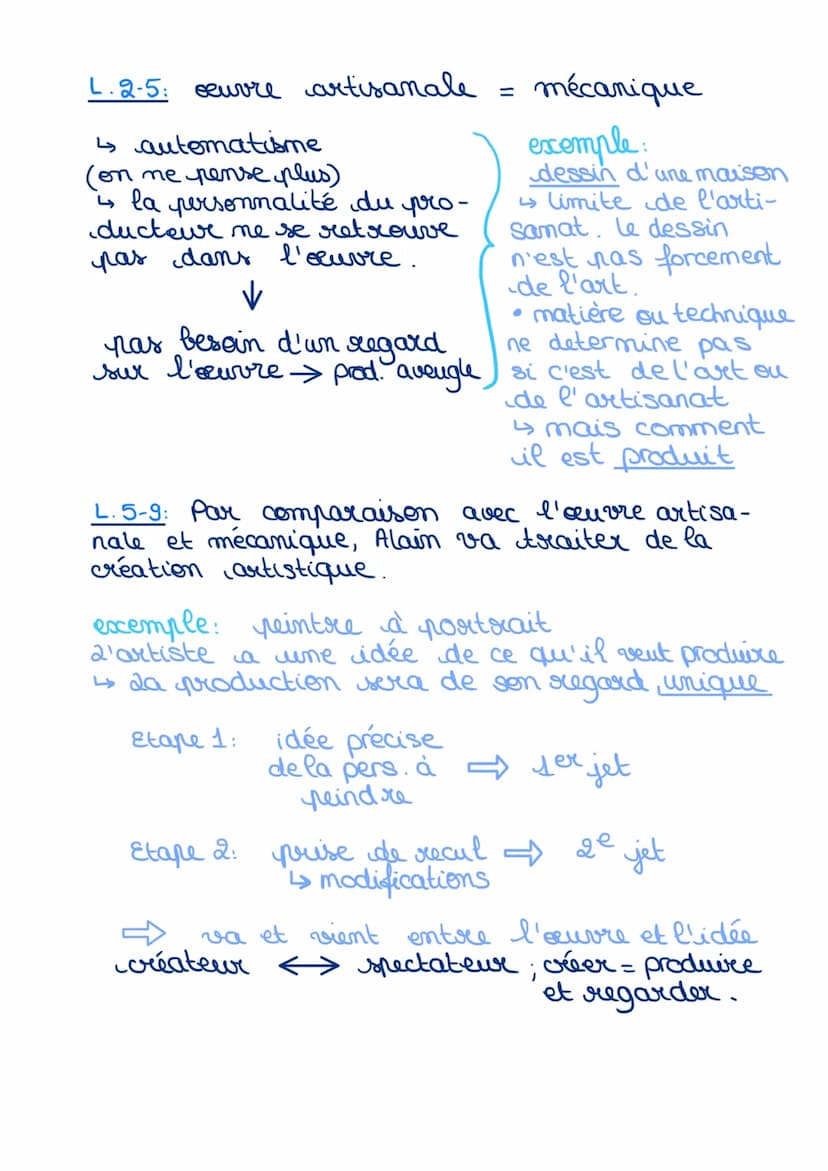 L.2-5: œuvre artisanale = mécanique
↳ automatisme
(on ne pense plus)
↳ la personnalité du pro-
ducteur ne se retrouve
pas dans l'œuvre.
↓
pas besoin d'un regard
sur l'œuvre → prod. aveugle
exemple:
dessin d'une maison
↳ limite de l'arti-
sanat. le dessin
n'est pas forcement
de l'art.
• matière ou technique
ne determine pas
si c'est de l'art ou
de l'artisanat
↳ mais comment
il est produit
L.5-9: Par comparaison avec l'œuvre artisa-
nale et mécanique, Alain va traiter de la
création artistique.
exemple: peintre à portrait
L'artiste a une idée de ce qu'il veut produire
↳ La production sera de son regard, unique
Etape 1: idée précise
de la pers. à ⇒ 1er jet
peindre
Etape 2: prise de recul ⇒ 2e jet
↳ modifications
⇒ va et vient entre l'œuvre et l'idée
créateur ↔ spectateur ; créer = produire
et regarder.